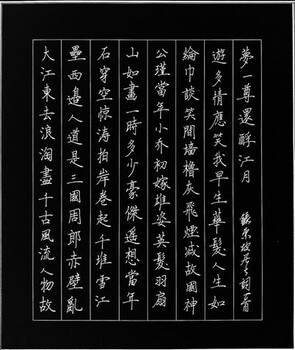 大江東去浪淘盡千古風流人物故
壘西邊人道是三國周郎赤壁亂
石穿空惊涛拍岸卷起千堆雪江
山如畫一時多少豪傑遙想當年
公瑾當年小乔初嫁雄姿英髮羽扇
綸巾談笑間墻櫓灰飛煙滅故國神
遊多情應笑我早生華髮人生如
夢一尊還酹江月